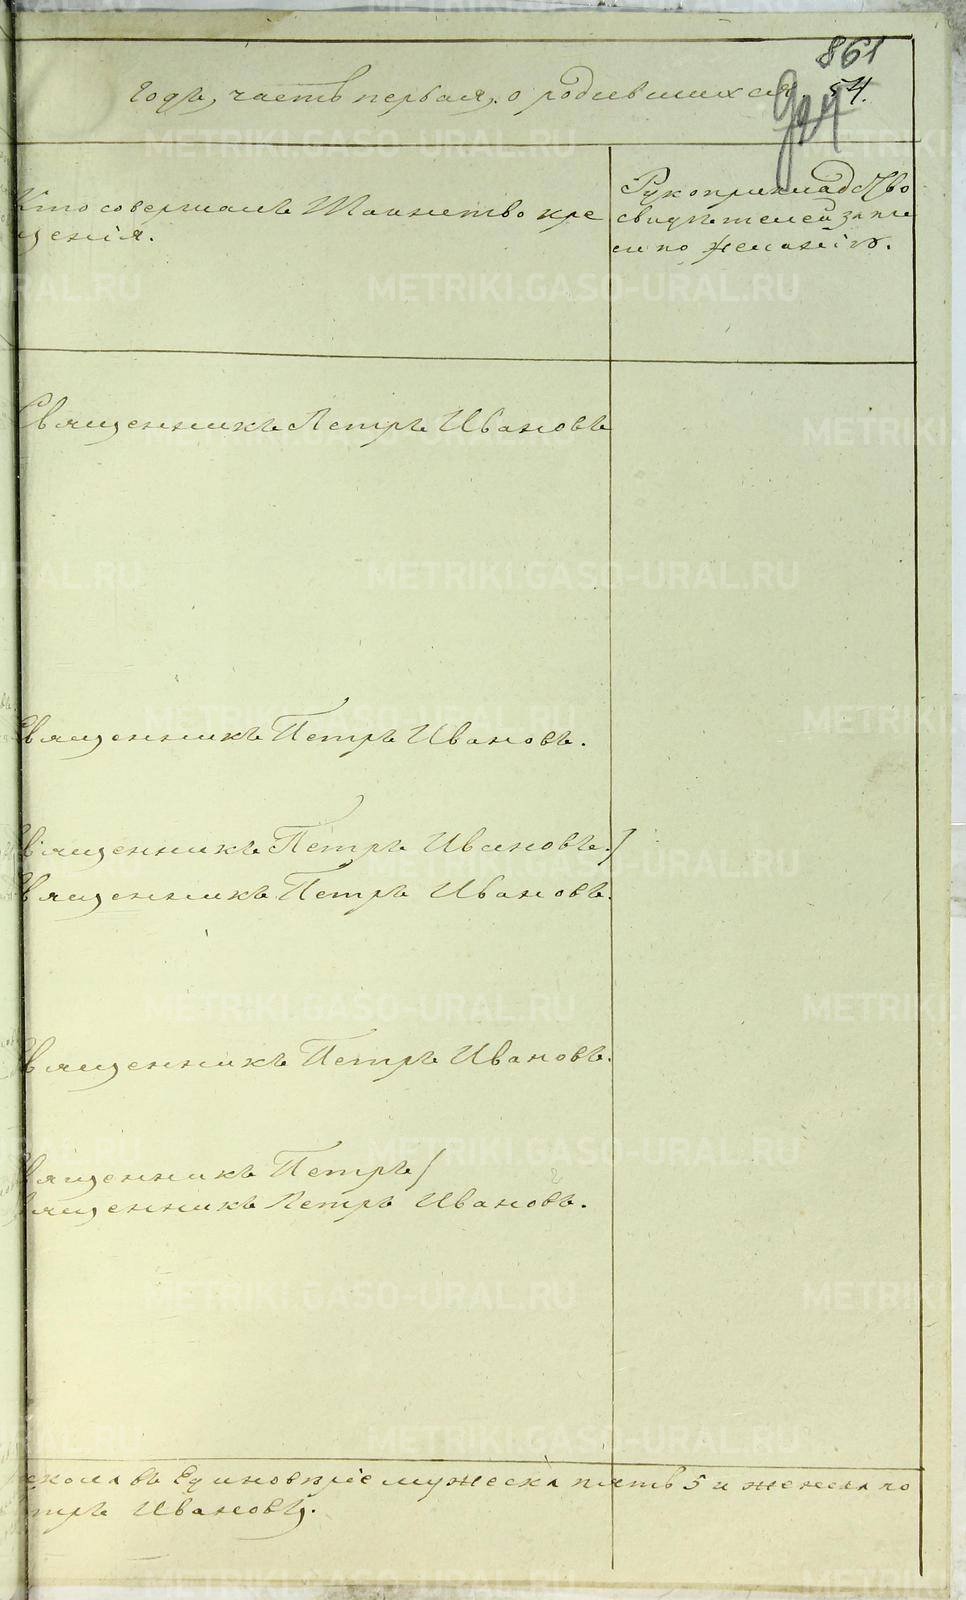 861
годъ, часть первая, о родившихся 54.
924
Кто совершалъ Таинство кре
щенія.
Рукоприкладство
свидѣтелей запи
си по желанію.
Священникъ Петръ Ивановъ
Священникъ Петръ Ивановъ.
Священникъ Петръ Ивановъ.
Священникъ Петръ Ивановъ.
Священникъ Петръ Ивановъ.
Священникъ Петръ
Священникъ Петръ Ивановъ.
въ Единовѣріе мужеска пять 5 и женска по
тръ Ивановъ.
METRIKI.GASO-URAL.RU